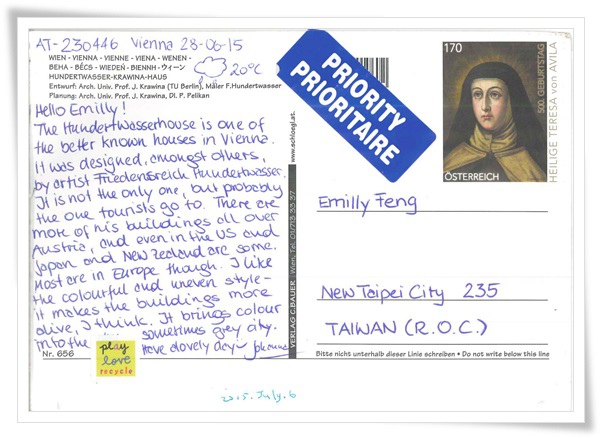 AT-230446 Vienna 28-06-15
WIEN - VIENNA - VIENNE - VIENA - WENEN -
BEHA - BÉCS - WIEDEŇ - BIENNH - ウィーン
20°C
HUNDERTWASSER-KRAWINA-HAUS
Entwurf: Arch. Univ. Prof. J. Krawina (TU Berlin), Maler F.Hundertwasser
Planung: Arch. Univ. Prof. J. Krawina, DI. P. Pelikan
Hello Emilly!
The Hundertwasserhouse is one of
the better known houses in Vienna.
It was designed, amongst others,
by artist Friedensreich Hundertwasser.
It is not the only one, but probably
the one tourists go to. There are
more of his buildings all over
Austria, and even in the US and
Japan and New Zealand are some.
Most are in Europe though. I like
the colourful and uneven style-
it makes the buildings more
alive, I think. It brings colour
into the ... sometimes grey city.
Have a lovely day~
Nr. 656
play
love
recycle
VERLAG C.BAUER Wien, Tel. 01/713 33 37
www.schloegl.at
PRIORITY
PRIORITAIRE
170
500. GEBURTSTAG
HEILIGE TERESA von AVILA
ÖSTERREICH
Emilly Feng
New Taipei City 235
TAIWAN (R.O.C.)
Bitte nicht unterhalb dieser Linie schreiben • Do not write below this line
2015. July. 6